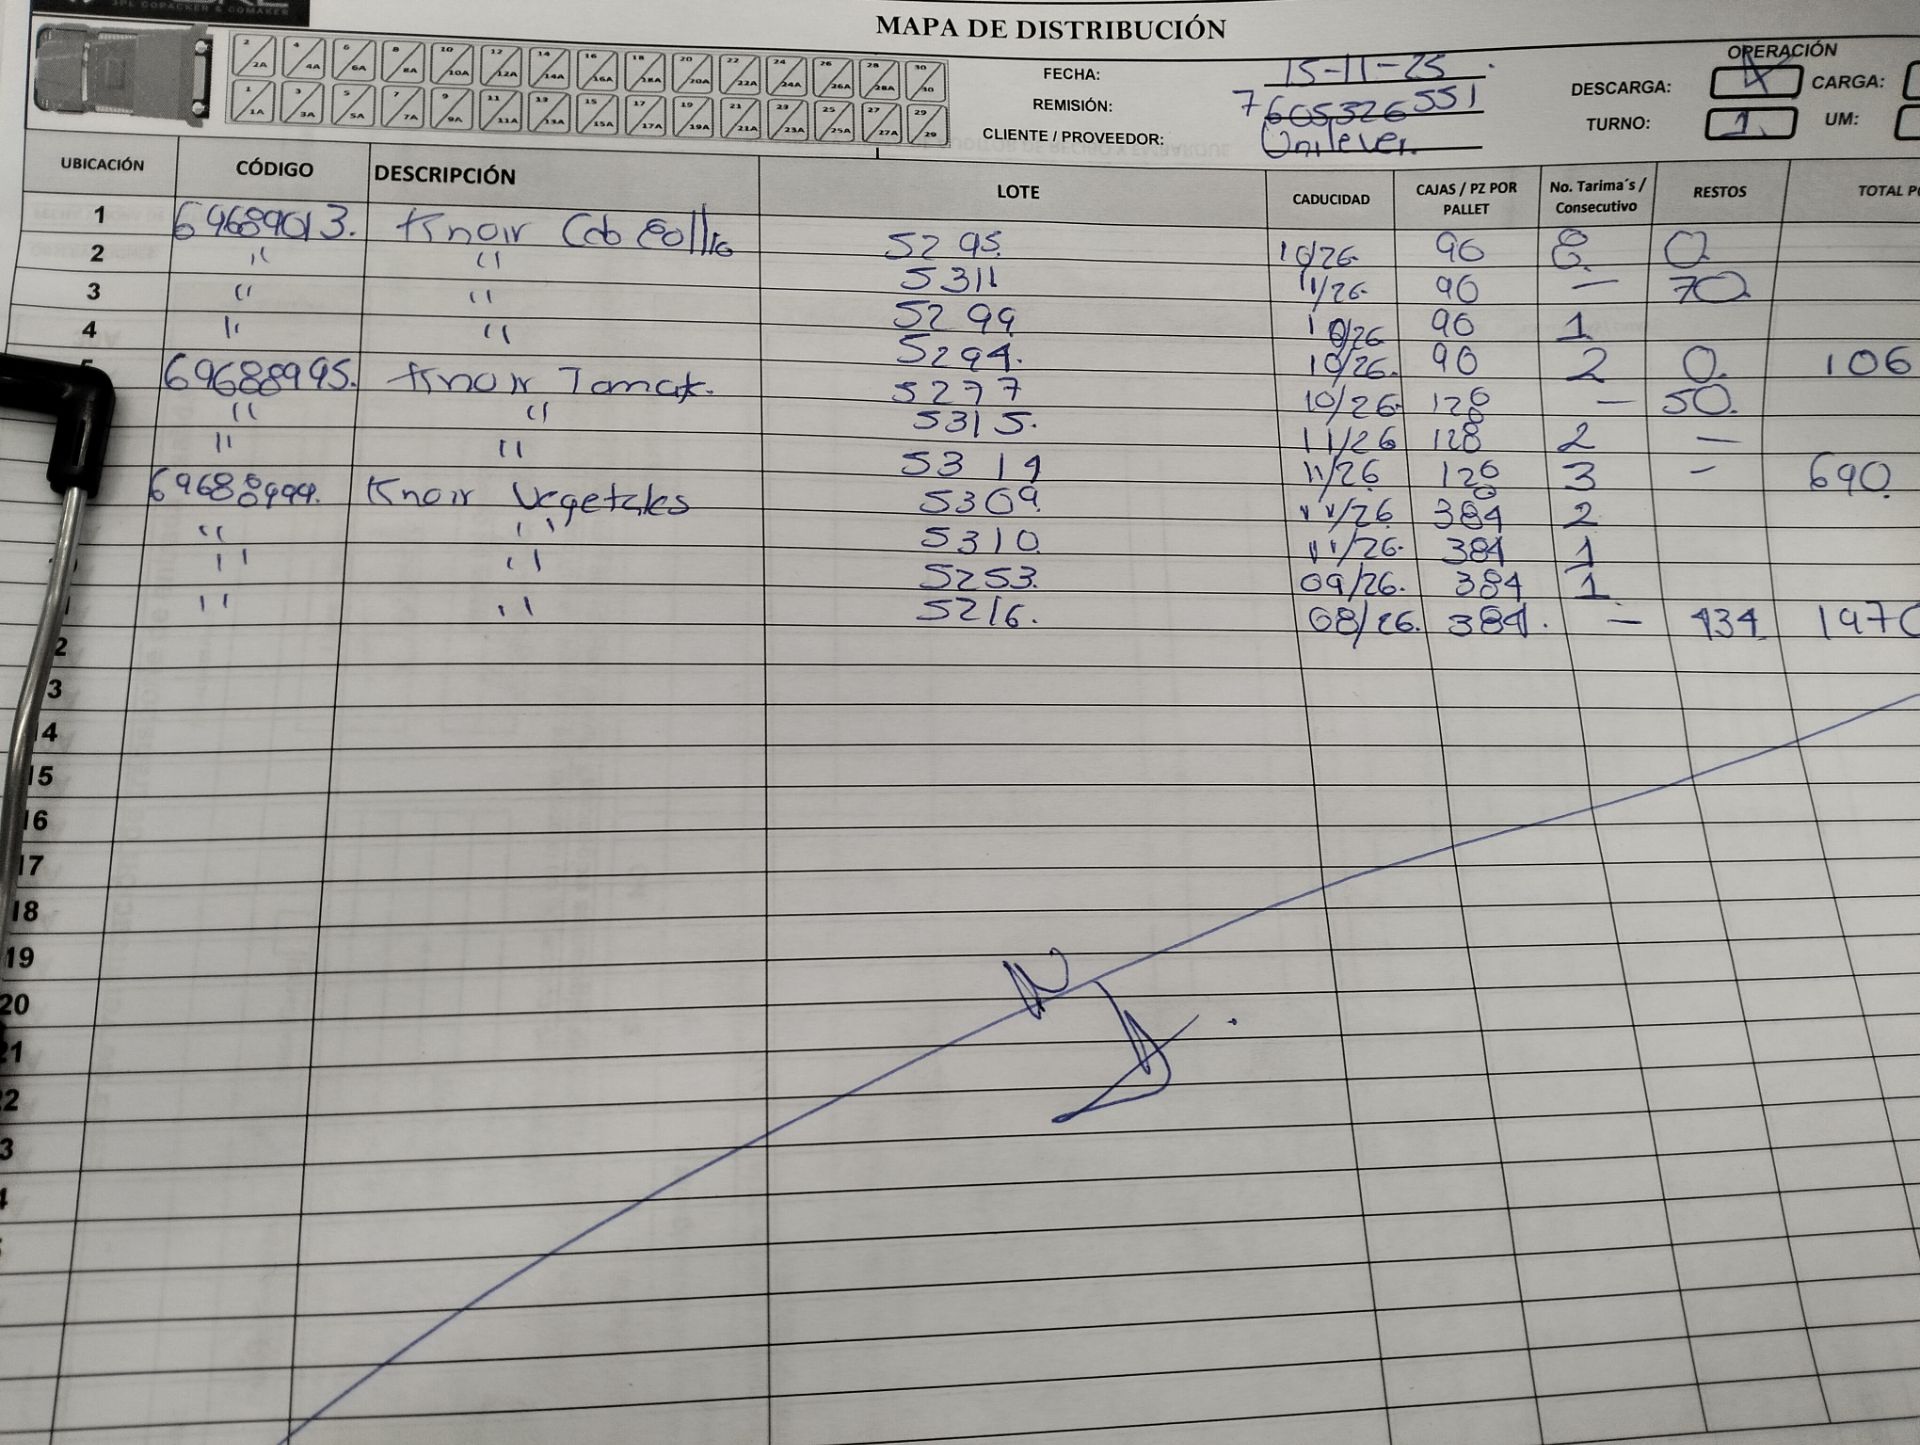 JPL COPACKER & COMAKER
MAPA DE DISTRIBUCIÓN
2 2A 4 4A 6 6A 8 8A 10 10A 12 12A 14 14A 16 16A 18 18A 20 20A 22 22A 24 24A 26 26A 28 28A 30 30
1 1A 3 3A 5 5A 7 7A 9 9A 11 11A 13 13A 15 15A 17 17A 19 19A 21 21A 23 23A 25 25A 27 27A 29 29
FECHA: 15-11-25.
REMISIÓN: 7605326551
CLIENTE / PROVEEDOR: Unilever.
OPERACIÓN
DESCARGA: CARGA:
TURNO: 1. UM:
UBICACIÓN CÓDIGO DESCRIPCIÓN LOTE CADUCIDAD CAJAS / PZ POR PALLET No. Tarima´s / Consecutivo RESTOS TOTAL
1 69689013. Knorr 5295. 10/26. 90 8. 0.
2 " " 5311 11/26. 90 — 70
3 " " 5299 10/26 90 1
4 " " 5294. 10/26. 90 2 0. 106
69688995. Knorr Tomat. 5277 10/26. 128 — 50.
" " 5315. 11/26 128 2 —
" " 5319 11/26 128 3 - 690.
Knorr Vegetales 5309. 11/26 384 2
" " 5310. 11/26. 384 1
" " 5253. 09/26. 384 1.
" " 5216. 08/26. 384. — 434 1970
2
3
14
15
16
17
18
19
20
21
22
3
4